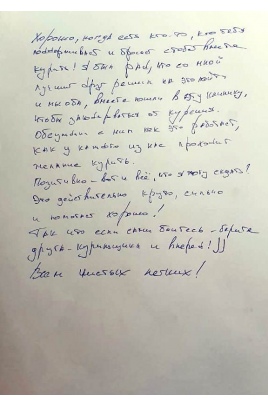 Хорошо, когда есть кто-то, кто тебя
поддерживает и бросает с тобой вместе
курить! Я был рад, что со мной
лучший друг решил на это пойти
и мы оба, вместе пошли в эту клинику,
чтобы закодироваться от курения.
Обсудили с ним как это работает,
как у каждого из нас проходит
желание курить.
Позитивно - вот и всё, что я могу сказать!
Это действительно круто, сильно
и помогает хорошо!
Так что если сами боитесь - берите
друга-курильщика и вперёд!))
Всем чистых легких!